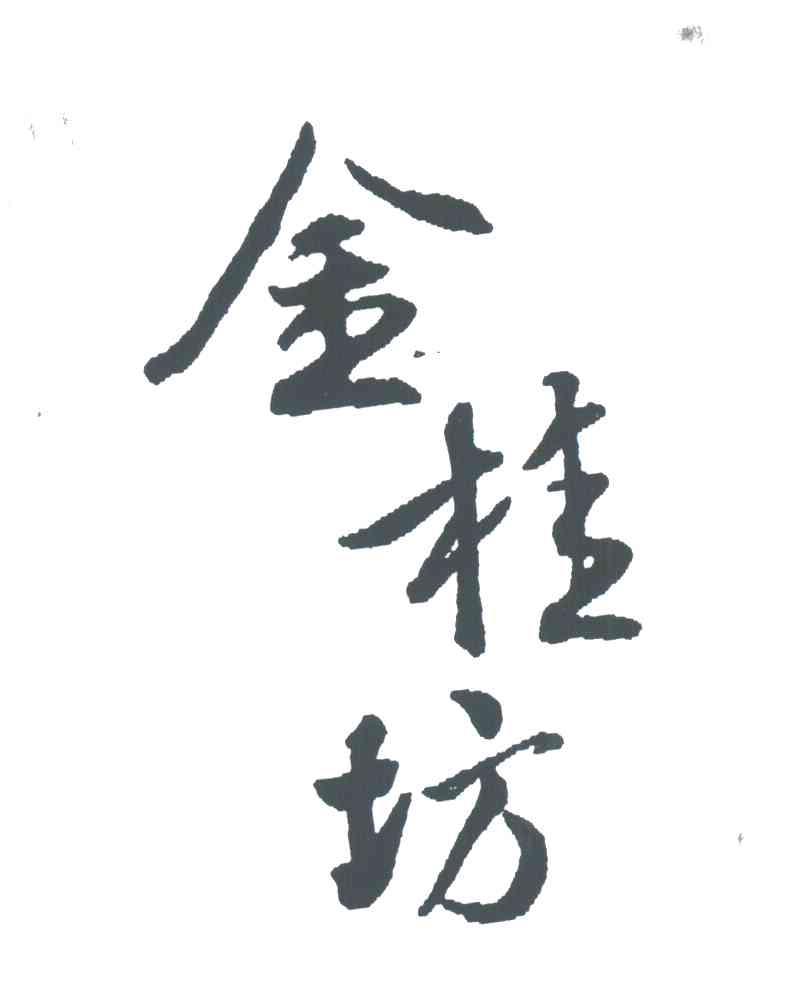 金桂坊